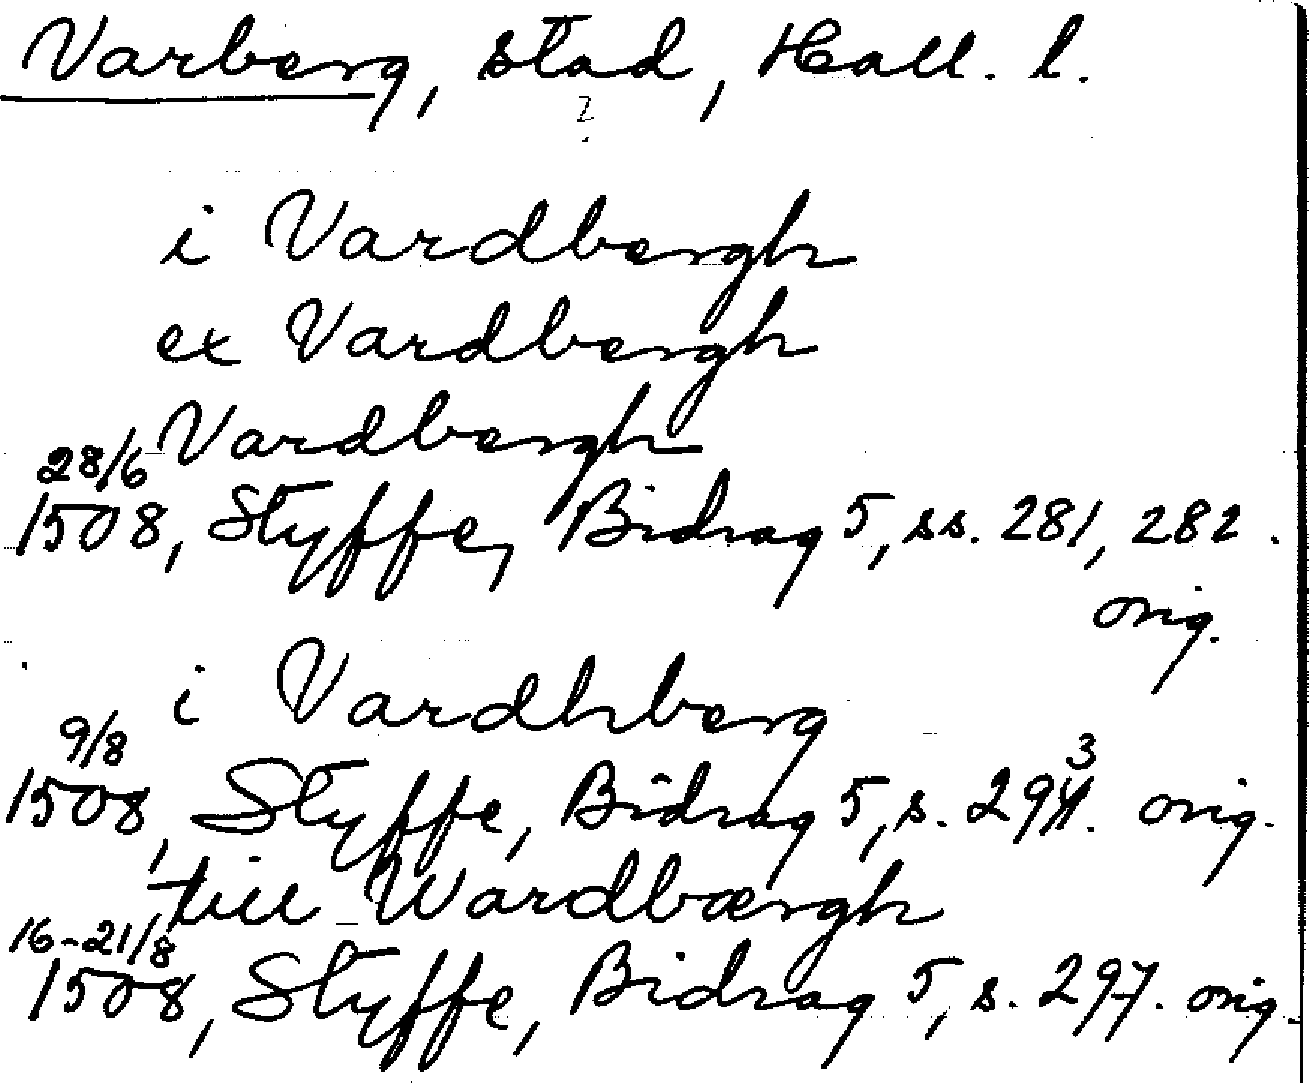 Varberg, stad, Hall. l.
?
i Vardbergh
ex Vardbergh
Vardbergh
28/6
1508, Styffe, Bidrag 5, ss. 281, 282.
orig.
i Vardhberg
9/8
1508, Styffe, Bidrag 5, s. 293. orig.
till Wardbærgh
16-21/8
1508, Styffe, Bidrag 5, s. 297. orig.